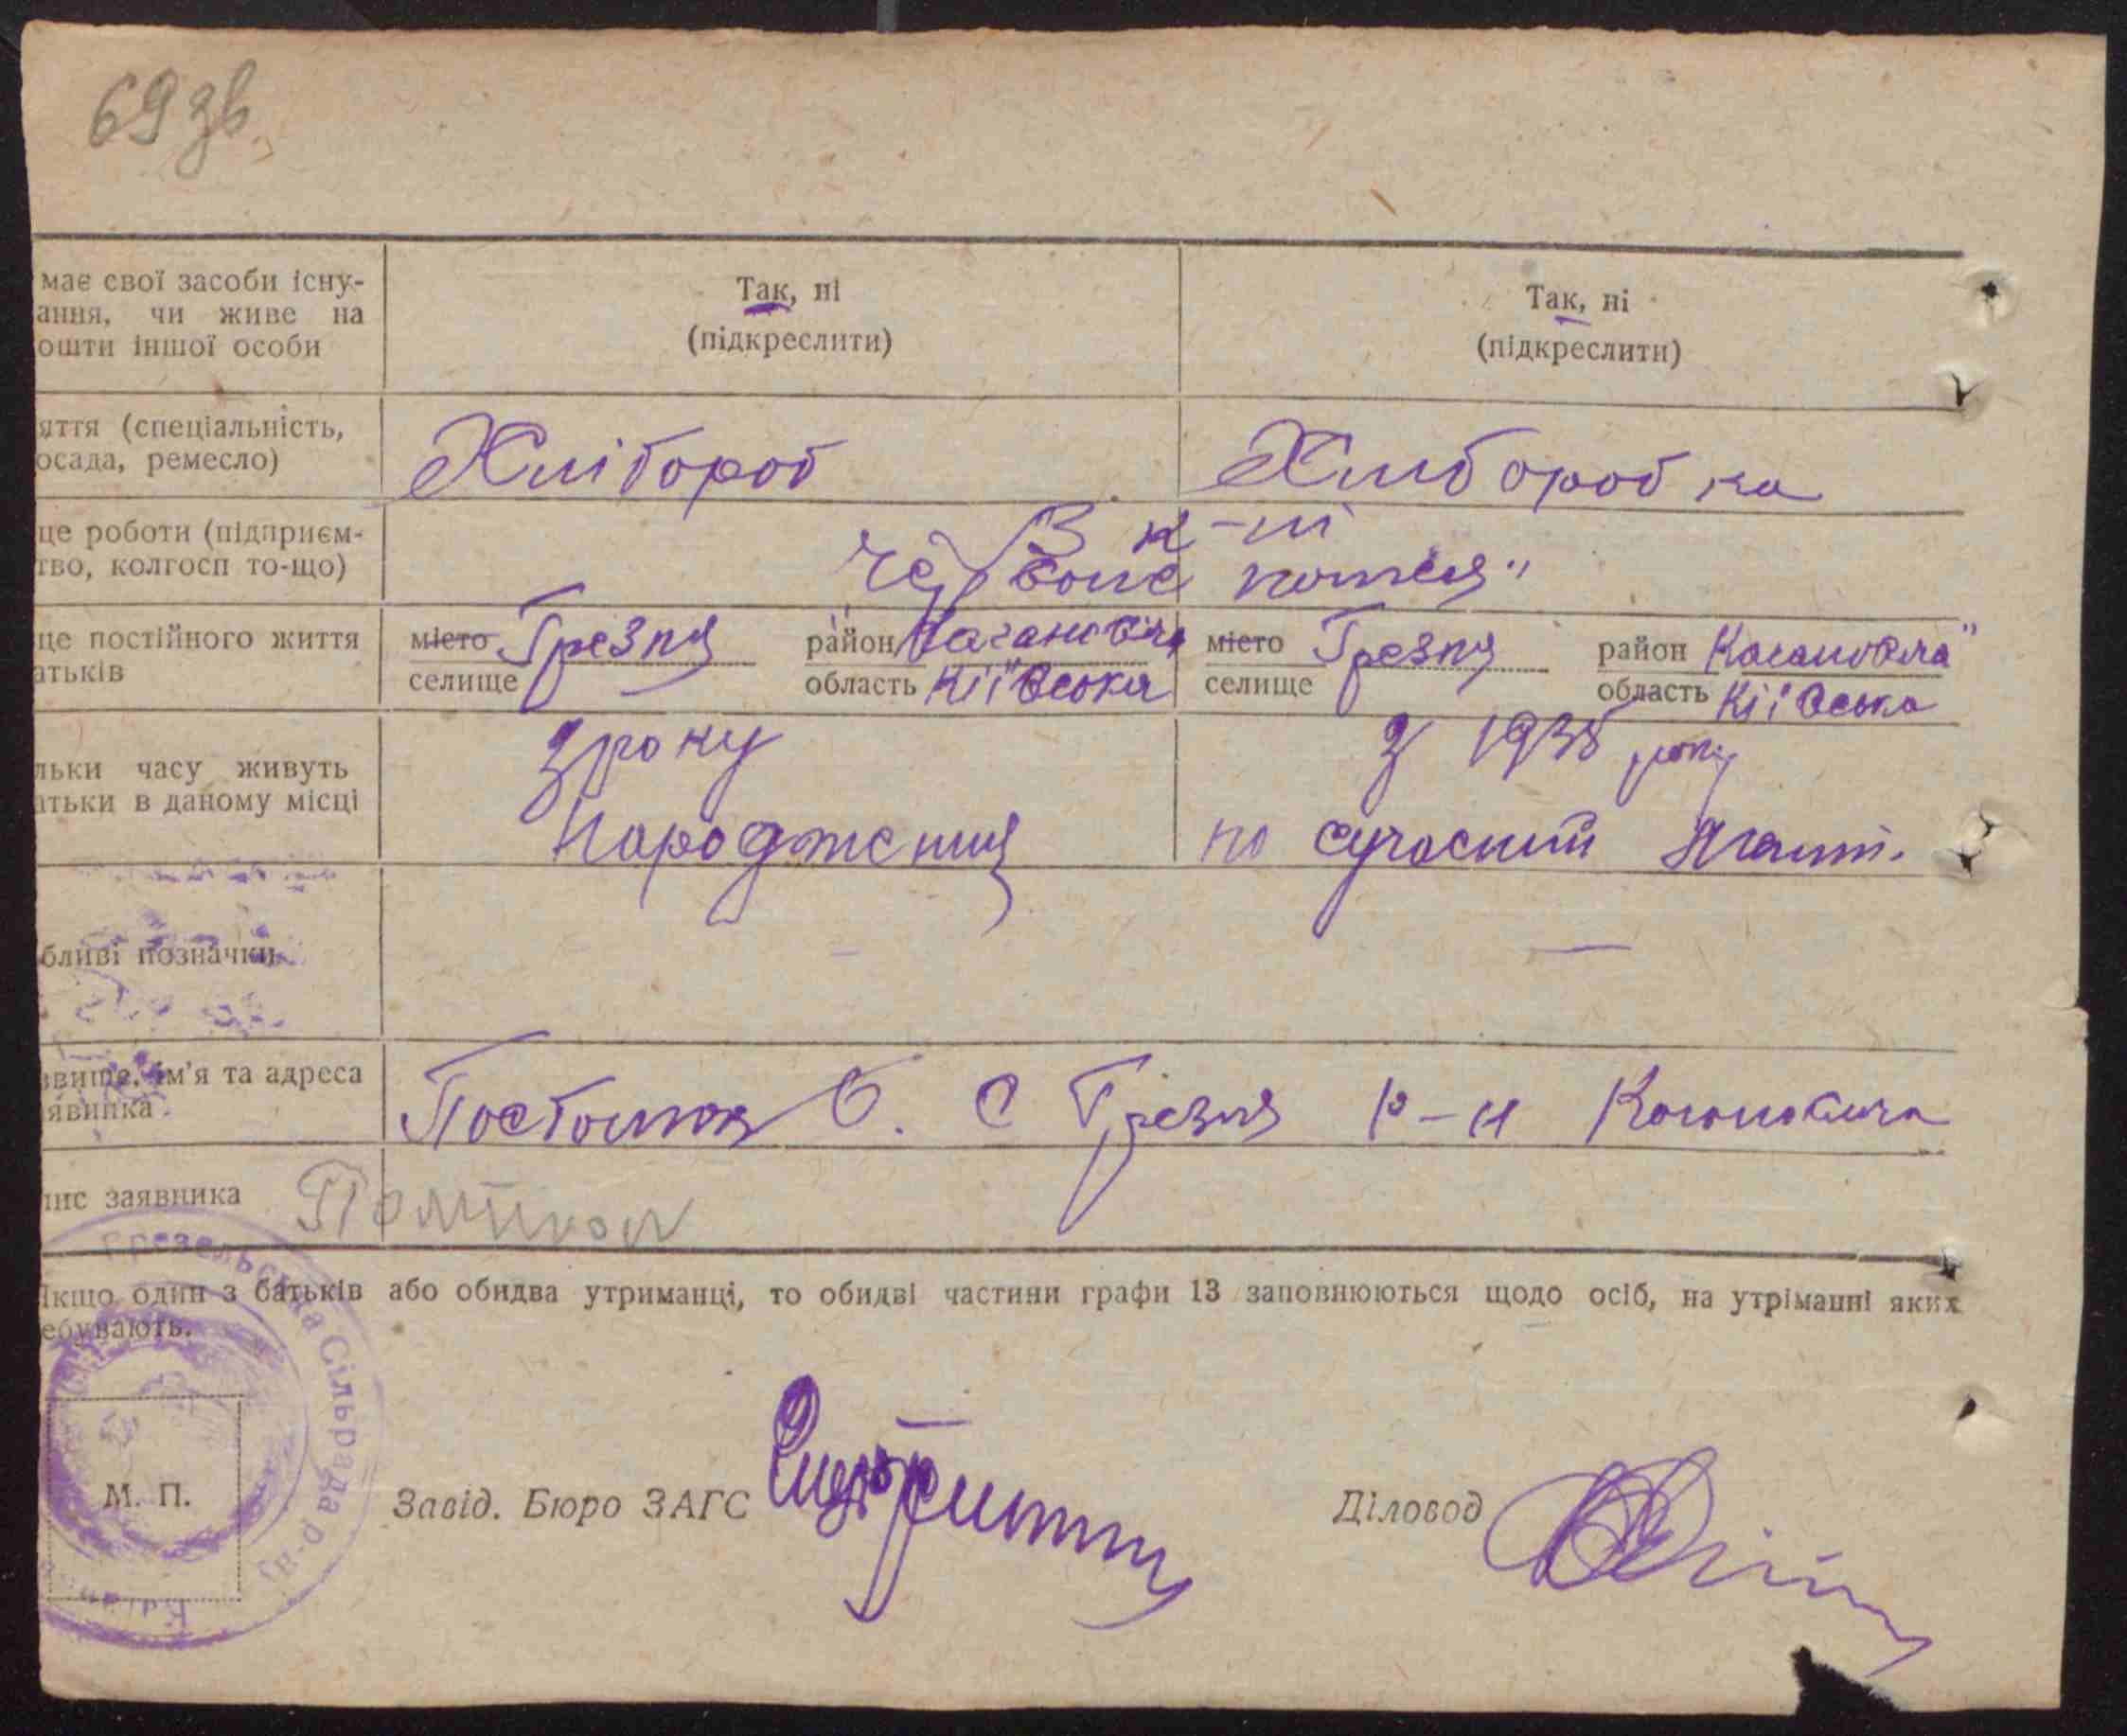 69 зв.
має свої засоби існу-
ання, чи живе на
ошти іншої особи
Так, ні
(підкреслити)
Так, ні
(підкреслити)
яття (спеціальність,
осада, ремесло)
Хлібороб
Хлиборобка
це роботи (підприєм-
тво, колгосп то-що)
В к-пі
Червоне
це постійного життя
атьків
місто Грезля район Кагановича
селище область Кіївська
місто Грезля район Кагановича"
селище область Кіївська
льки часу живуть
атьки в даному місці
З року
народження
З 1938 року
по сучасний
бливі позначки
—
—
звище, ім'я та адреса
явника
С Грезля р-н Кагановича
пис заявника
Якщо один з батьків або обидва утриманці, то обидві частини графи 13 заповнюються щодо осіб, на утріманні яких
ебувають.
Грезельська Сільрада р-ну
М. П.
Завід. Бюро ЗАГС
Діловод